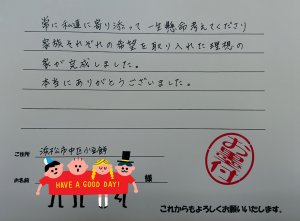 常に私達に寄り添って一生懸命考えてくださり
家族それぞれの希望を取り入れた理想の
家が完成しました。
本当にありがとうございました。
ご住所 浜松市中区
お名前 様
HAVE A GOOD DAY!
お墨付
これからもよろしくお願いいたします。